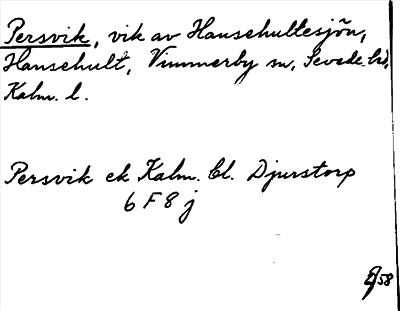 Persvik, vik av Hansehultesjön,
Hansehult, Vimmerby sn, Sevede hd,
Kalm. l.
Persvik ek Kalm. bl. Djurstorp
6 F 8 j
58